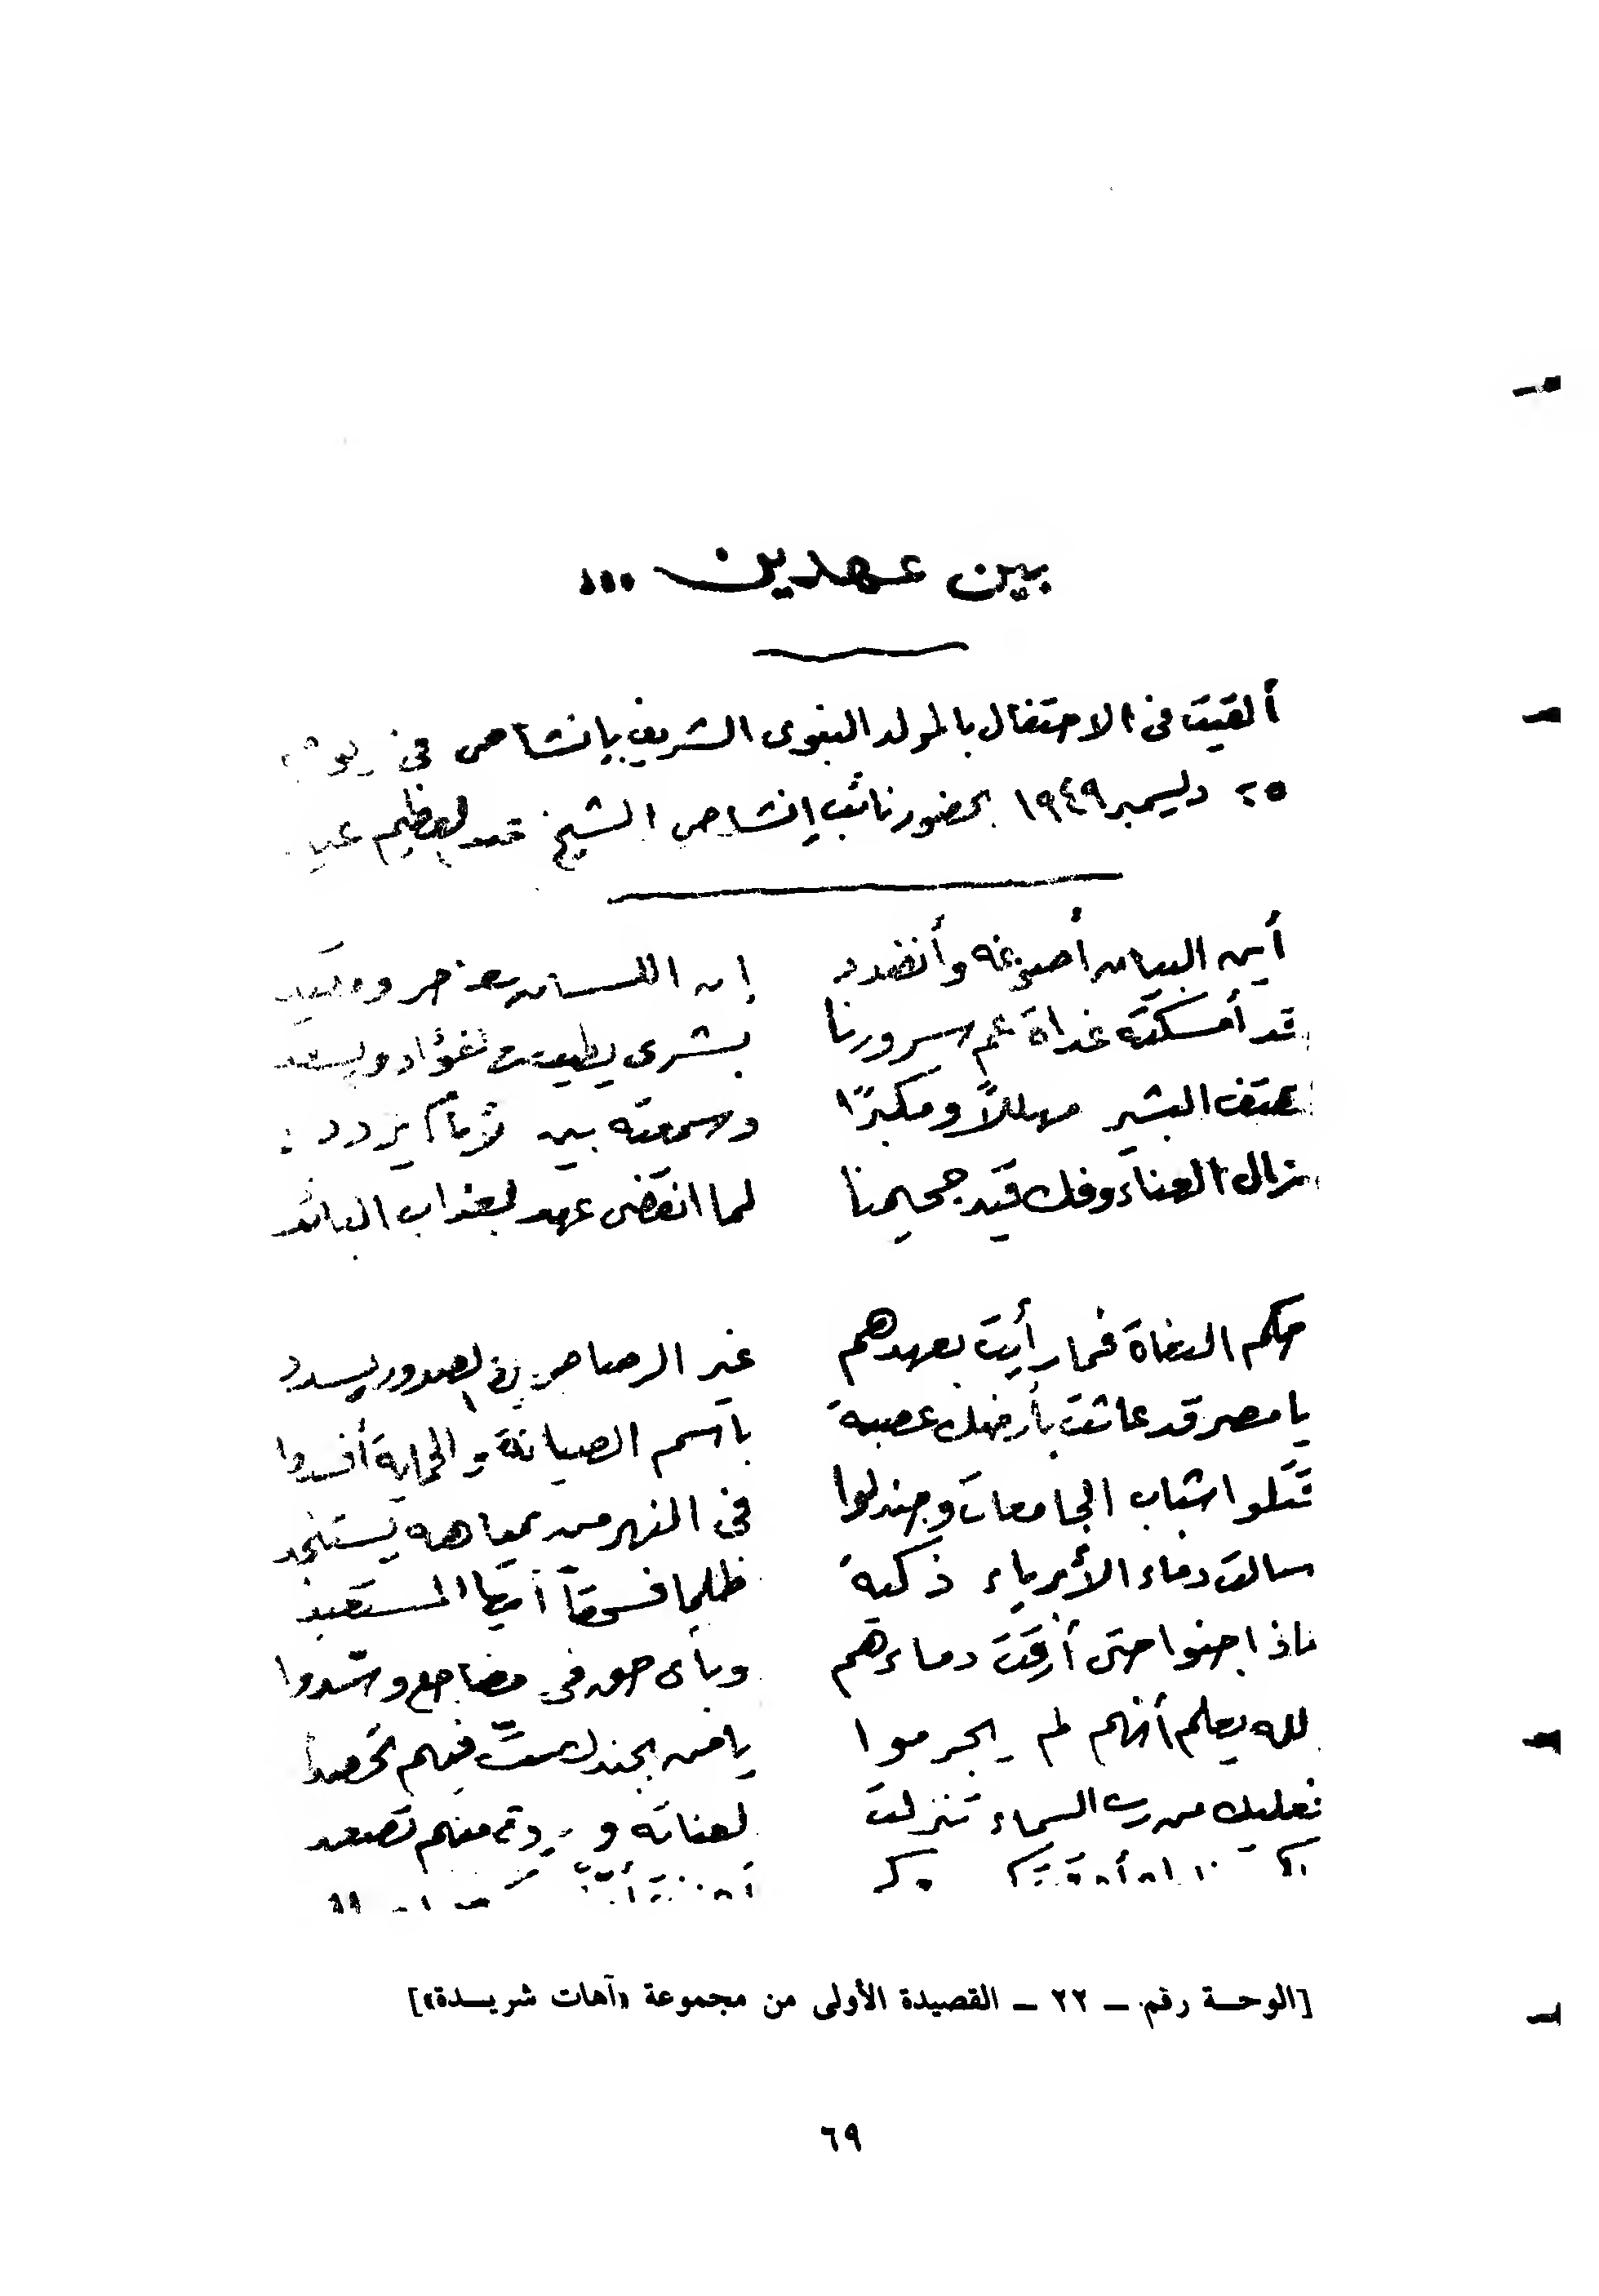 بين عهدين ...
ألقيت فى الاحتفال بالمولد النبوى الشريف بإنشاص فى
٢٥ ديسمبر ١٩٤٩ بحضور نائب إنشاص الشيخ عبد العظيم
أين البيان أصوغه وأنضد إن اللسان معذر ومقيد
قد أمسكته غداة عم سرورنا بشرى يطيب لفؤاد ويسعد
هتف البشير مهللاً ومكبرًا وسمعته بين الأنام يردد :
زال العناء وفك قيد جحيمنا لما انقضى عهد لعذاب البائد
حكم البغاة فما رأيت بعهدهم غير الرصاص فى الصدور يسدد
يا مصر قد عاثت بأرضك عصبة باسم الصيانة والحماية أفسدوا
قتلوا شباب الجامعات وجندلوا فى النهر من بمياهه يستنجد
سالت دماء الأبرياء ذكية ظلما فسحقاً أيها المستعبد
ماذا جنوا حتى أرقت دماءهم وبأى حق فى مضاجع وسدوا
لله يعلم أنهم لم يجرموا يا من بجندك فيهم تحصد
فعليك من رب السماء تنزلت لعناته و منهم تصعد
[الوحة رقم – ٢٢ – القصيدة الأولى من مجموعة «آهات شريدة»]
٦٩